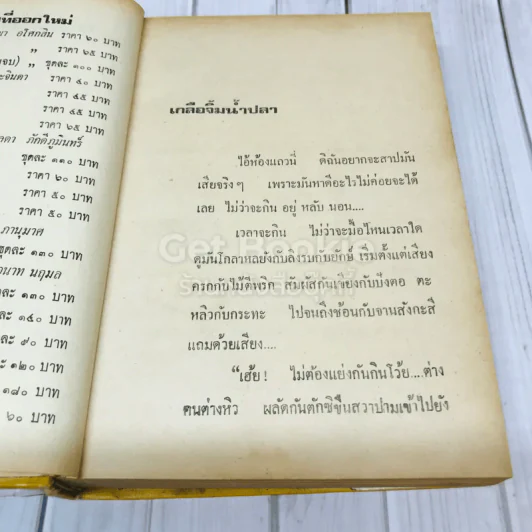 ที่ออกใหม่
อโศกสิน ราคา ๖๐ บาท
” ราคา ๖๕ บาท
จบ) ” ชุดละ ๓๐๐ บาท
ะจินดา ราคา ๔๐ บาท
ราคา ๔๕ บาท
ราคา ๔๕ บาท
ราคา ๖๕ บาท
ดา ภักดีภูมินทร์
ชุดละ ๑๑๐ บาท
ราคา ๖๐ บาท
ราคา ๕๐ บาท
ราคา ๕๐ บาท
ภานุมาศ
ชุดละ ๑๓๐ บาท
นาท นฤมล
ละ ๑๓๐ บาท
ละ ๑๔๐ บาท
ละ ๙๐ บาท
ะ ๑๒๐ บาท
๑๘๐ บาท
๖๐ บาท
เกลือจิ้มน้ำปลา
ไอ้ห้องแถวนี่ ดิฉันอยากจะสาปมัน
เสียจริงๆ เพราะมันทาดีอะไรไม่ค่อยจะได้
เลย ไม่ว่าจะกิน อยู่ หลับ นอน....
เวลาจะกิน ไม่ว่าจะมื้อไหนเวลาใด
ดูมันโกลาหลยังกับลิงรบกับยักษ์ เริ่มตั้งแต่เสียง
ครกกับไม้ตีพริก สัมผัสกันเขียงกับปังตอ ตะ
หลิวกับกระทะ ไปจนถึงช้อนกับจานสังกะสี
แถมด้วยเสียง....
“เฮ้ย ! ไม่ต้องแย่งกันกินโว้ย....ต่าง
คนต่างหิว ผลัดกันตักซิขืนสวาปามเข้าไปยัง
Get Bookie